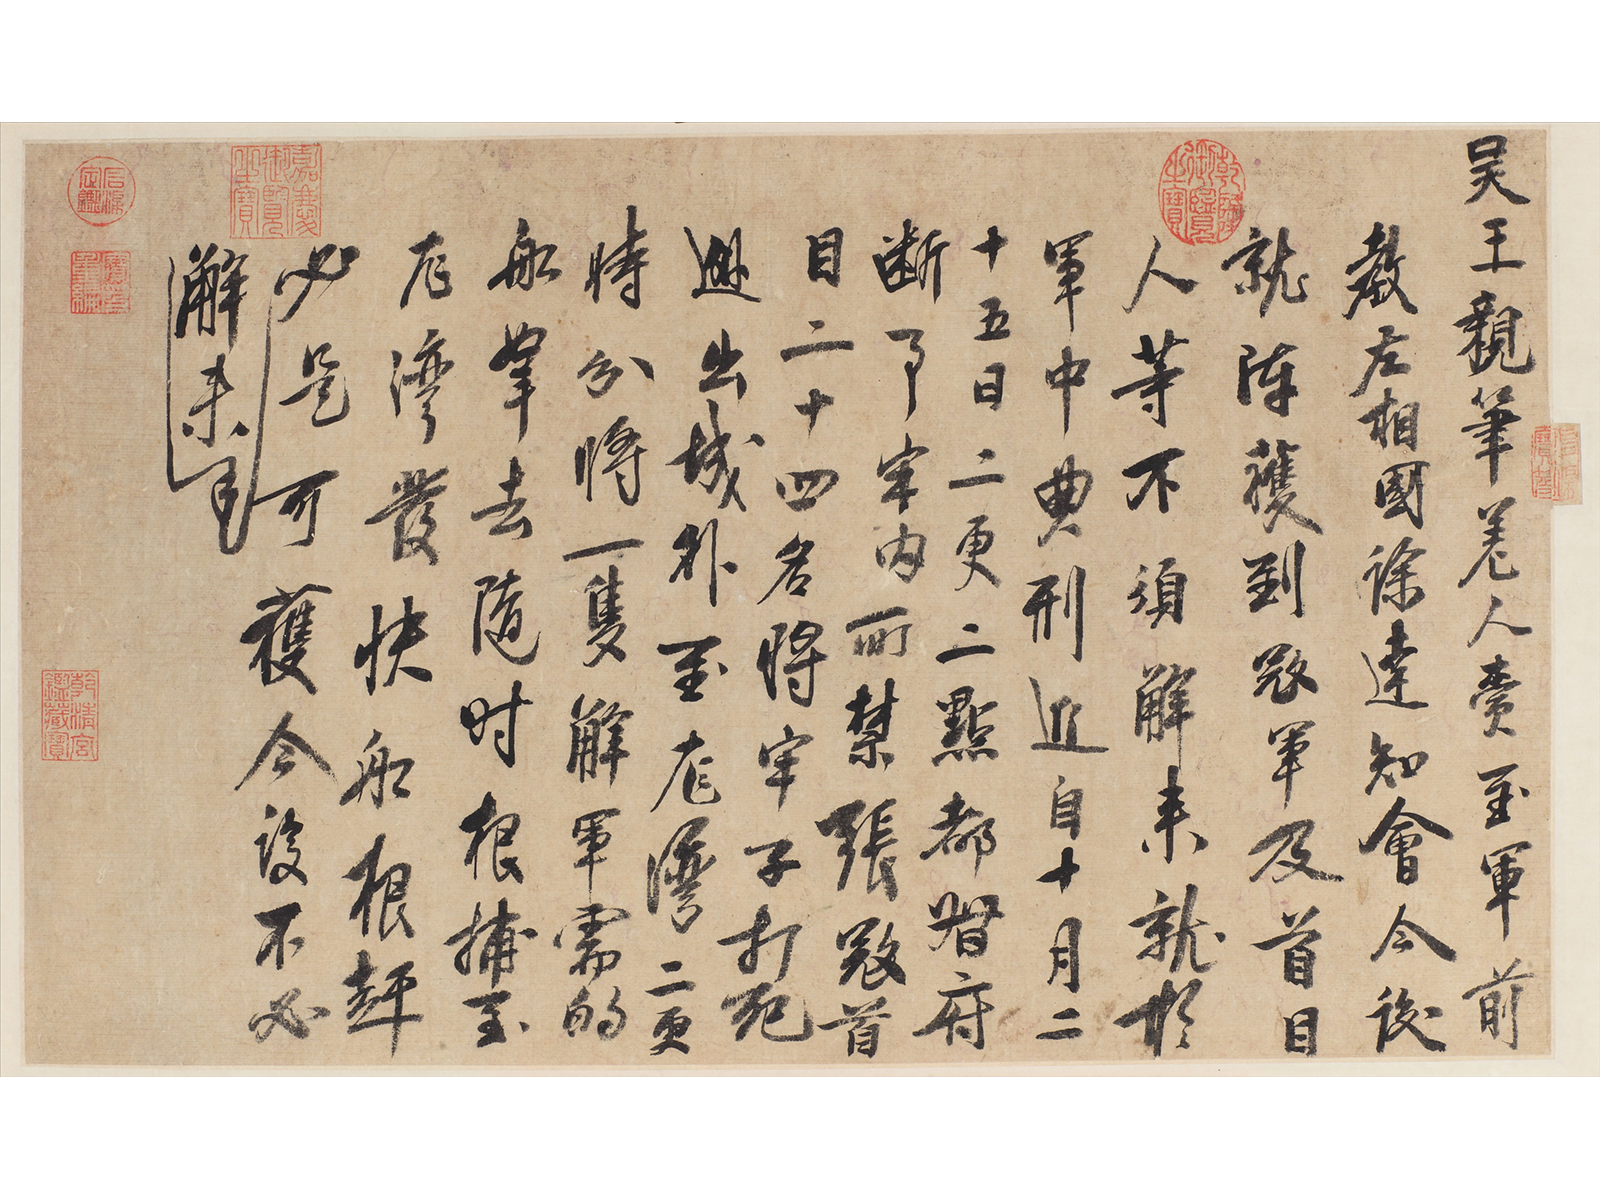 吳王親筆差人賫至軍前
教左相國徐達知會今後
就陣獲到寇軍及首目
人等不須解来就於
軍中典刑近自十月二
十五日二更二點都督府
断了牢内所禁張寇首
目二十四名將牢子打死
遯出城外至龙湾二更
時分將一隻解軍需的
船拏去随时根捕至
龙湾發快船根趕
必是可獲今後不必
解来
乾隆御覽之寶
嘉慶御覽之寶
石渠定鑑
寶笈重編
乾清宮鑑藏寶